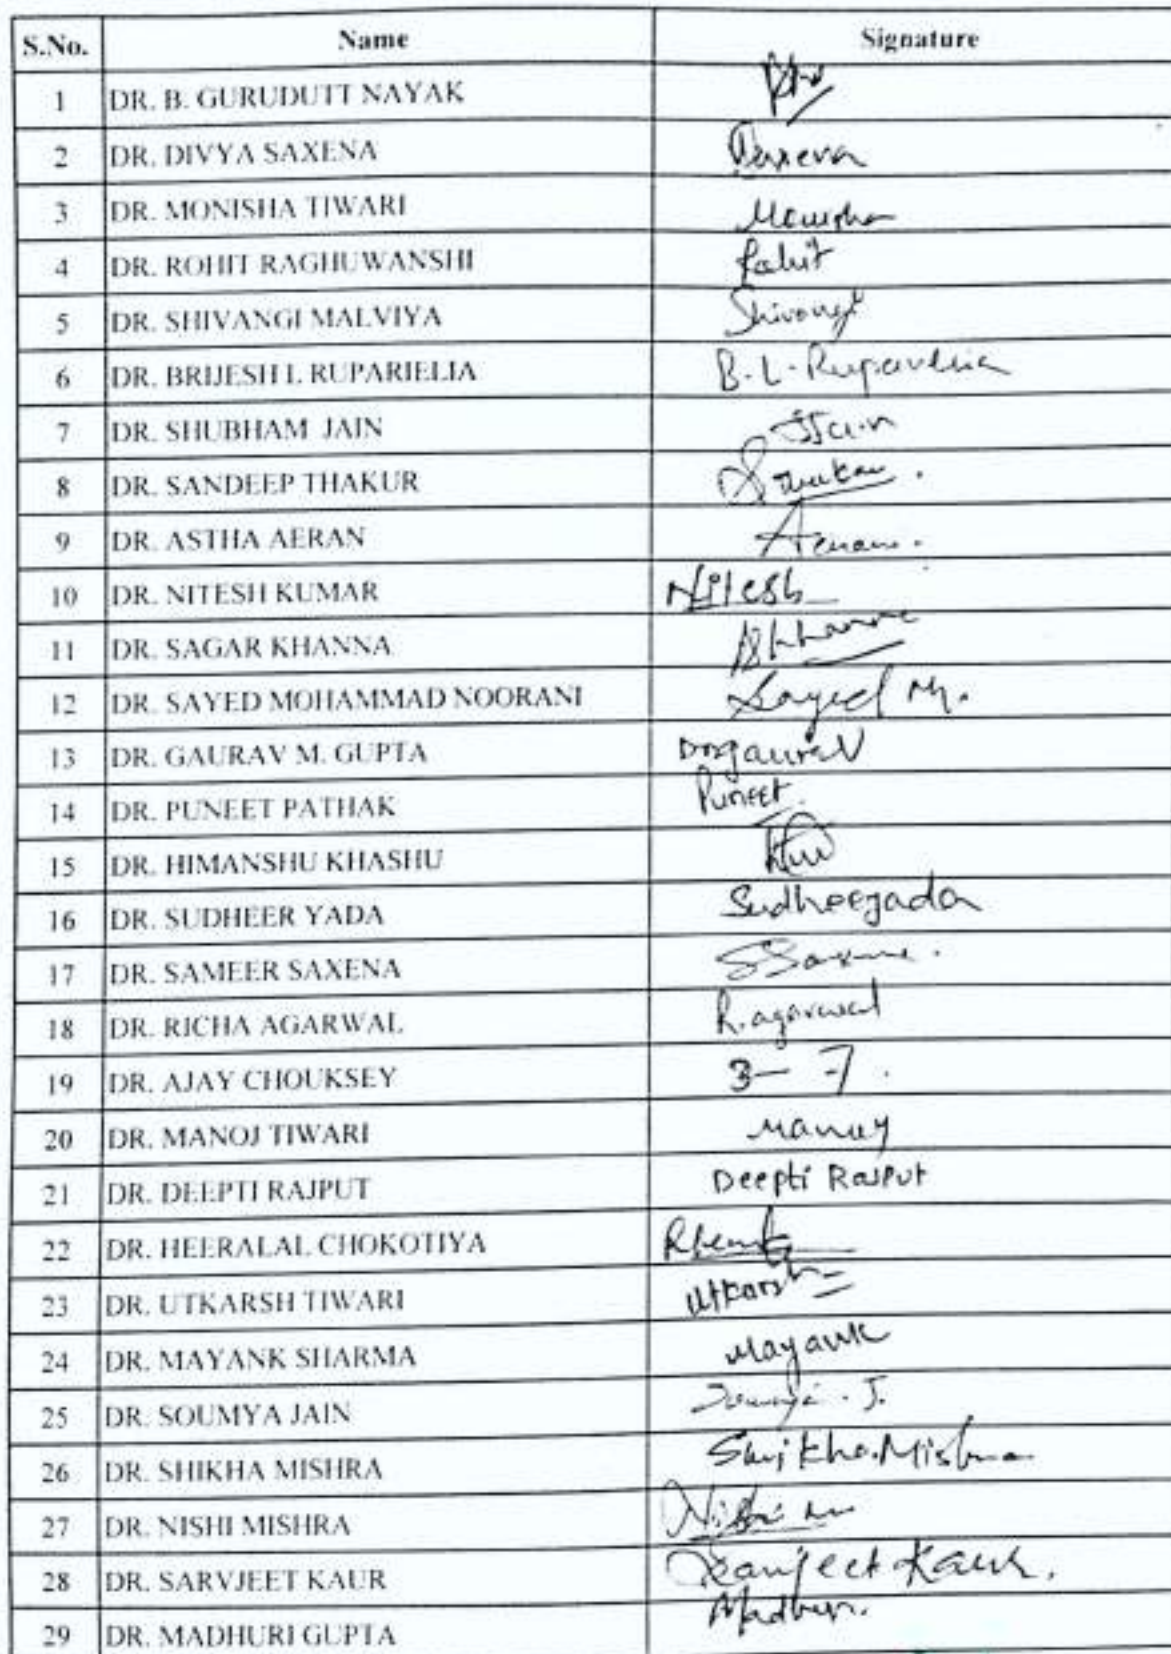 S.No. Name Signature
1 DR. B. GURUDUTT NAYAK
2 DR. DIVYA SAXENA
3 DR. MONISHA TIWARI
4 DR. ROHIT RAGHUWANSHI Rohit
5 DR. SHIVANGI MALVIYA Shivangi
6 DR. BRIJESH L. RUPARIELIA B.L.Ruparelia
7 DR. SHUBHAM JAIN SJain
8 DR. SANDEEP THAKUR
9 DR. ASTHA AERAN
10 DR. NITESH KUMAR Nitesh
11 DR. SAGAR KHANNA
12 DR. SAYED MOHAMMAD NOORANI Sayed M.
13 DR. GAURAV M. GUPTA
14 DR. PUNEET PATHAK Puneet
15 DR. HIMANSHU KHASHU
16 DR. SUDHEER YADA
17 DR. SAMEER SAXENA
18 DR. RICHA AGARWAL R.agarwal
19 DR. AJAY CHOUKSEY
20 DR. MANOJ TIWARI
21 DR. DEEPTI RAJPUT Deepti Rajput
22 DR. HEERALAL CHOKOTIYA
23 DR. UTKARSH TIWARI Utkarsh
24 DR. MAYANK SHARMA Mayank
25 DR. SOUMYA JAIN Soumya. J.
26 DR. SHIKHA MISHRA Shikha.Mishra
27 DR. NISHI MISHRA
28 DR. SARVJEET KAUR Sarvjeet Kaur.
29 DR. MADHURI GUPTA Madhuri.